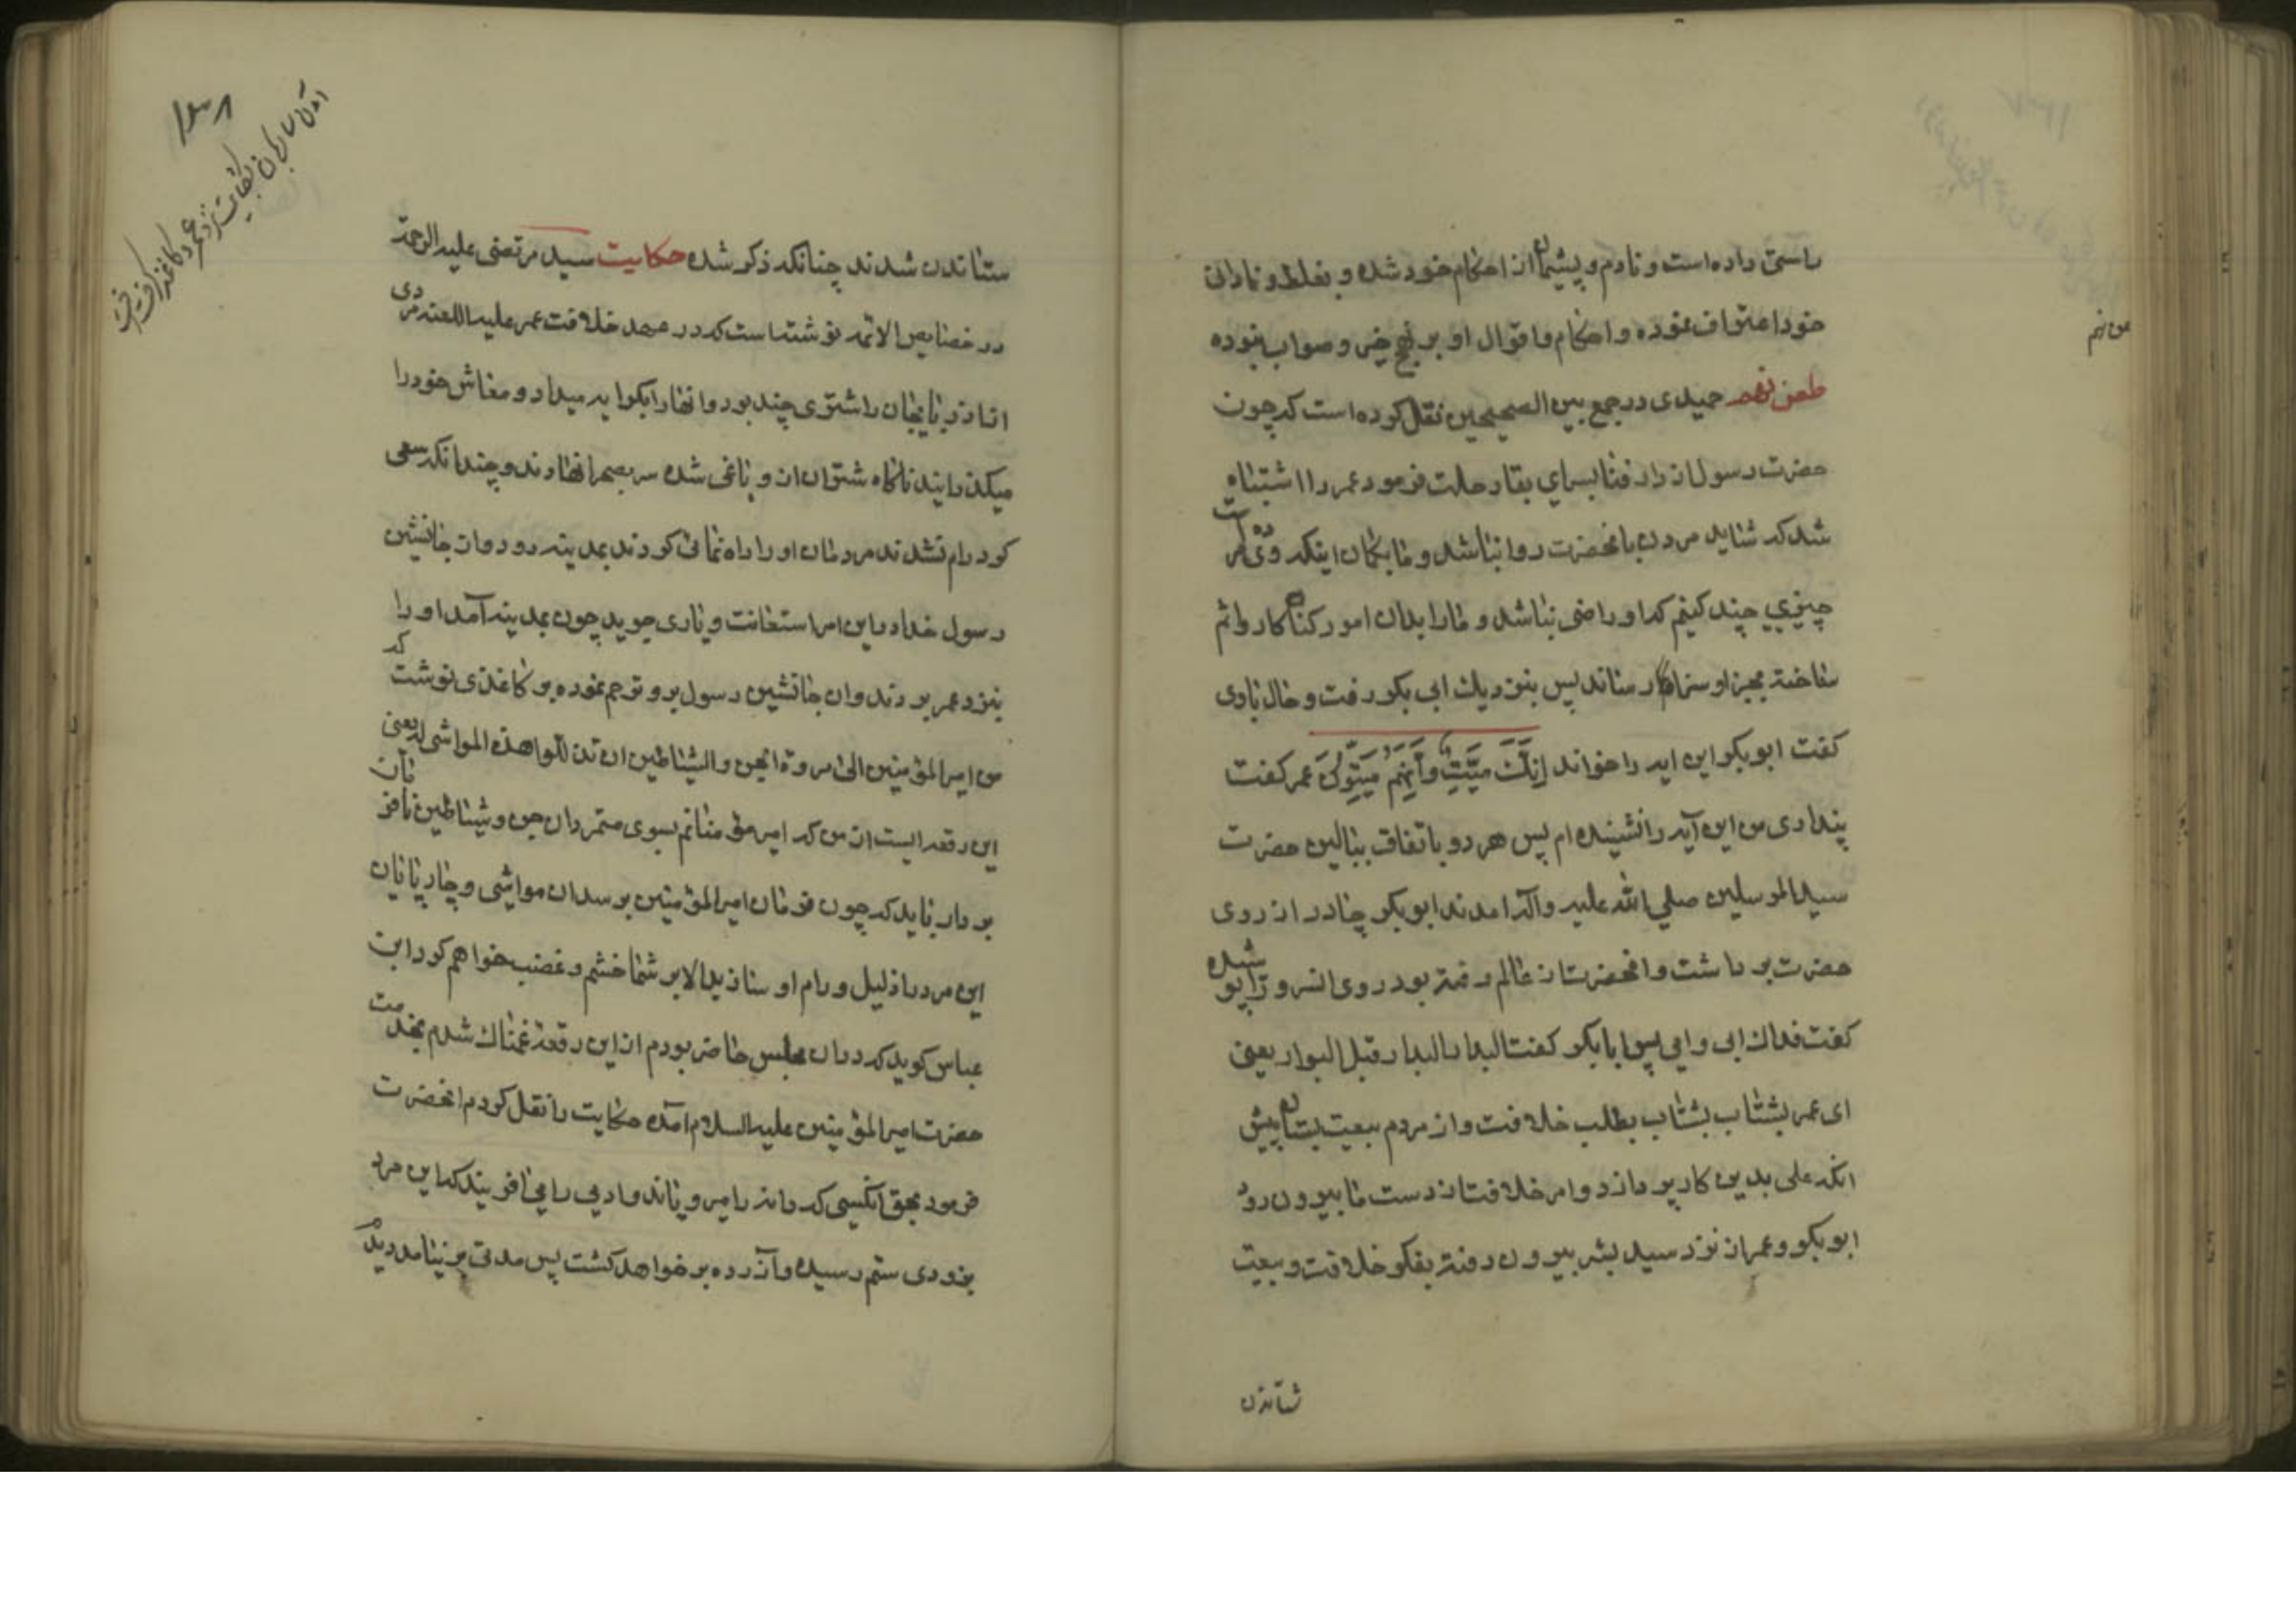 راستی داده است و نادم و پشیمان از احکام خود شده و بغلط و نادانی
خود اعتراف نموده و احکام و اقوال او بر نهج خیر و صواب نبوده
طعن نهم حمیدی در جمع بین الصحیحین نقل کرده است که چون
حضرت رسول از دار فنا بسرای بقا رحلت فرمود عمر را اشتباه
شد که شاید مردن بانحضرت روا نباشد و ما بکمان اینکه وی مرده است
چیزی چند کنیم که او راضی نباشد و ما را بدان امور کناه کار و اثم
ساخته بجزا و سزا رساند پس بنزدیک ابی بکر رفت و حال باوی
کفت ابوبکر این ایه را خواند اِنَّكَ مَيِّتٌ وَاِنَّهُم مَيِّتُونَ عمر کفت
پنداری من این آیه را نشنیده ام پس هر دو باتفاق ببالین حضرت
سید المرسلین صلی الله علیه واله امدند ابوبکر چادر از روی
حضرت برداشت و انحضرت از عالم رفته بود روی انسرور را بوسیده
کفت فداك ابی و امی پس ابابکر کفت البدار البدار قبل البوار یعنی
ای عمر بشتاب بشتاب بطلب خلافت و از مردم بیعت بستان پیش
انکه علی بدین کار پردازد و امر خلافت از دست ما بیرون رود
ابوبکر و عمر از نزد سید بشر بیرون رفته بفکر خلافت و بیعت
ستاندن
طعن نهم
ستاندن شدند چنانکه ذکر شده حکایت سید مرتضی علیه الرحمة
در خصایص الائمه نوشته است که در عهد خلافت عمر علیه اللعنه مردی
از اذربایجان را شتری چند بود و انها را بکرایه میداد و معاش خود را
میکذرانید ناکاه شتران از او یاغی شده سر بصحرا نهادند و چندانکه سعی
کرد رام نشدند مردمان او را راه نمائی کردند بمدینه رود و از جانشین
رسول خدا در این امر استعانت و یاری جوید چون بمدینه آمد او را
بنزد عمر بردند و ان جانشین رسول بر او ترحم نموده بر کاغذی نوشت که
من امیر المؤمنین الی مردة الجن والشیاطین ان تذللوا هذه المواشی له یعنی
این رقعه ایست از من که امیر مؤمنانم بسوی متمردان جن و شیاطین نافرمان
بردار باید که چون فرمان امیر المؤمنین برسد ان مواشی و چارپایان
این مرد را ذلیل و رام او سازید الا بر شما خشم و غضب خواهم کرد ابن
عباس کوید که در ان مجلس حاضر بودم از این رقعه غمناك شدم بخدمت
حضرت امیر المؤمنین علیه السلام آمده حکایت را نقل کردم انحضرت
فرمود بحق انکسی که دانه را میرویاند و ادمی را می افریند که این مرد
بزودی ستم رسیده و آزرده بر خواهد کشت پس مدتی بر نیامد دیدم
۱۳۸